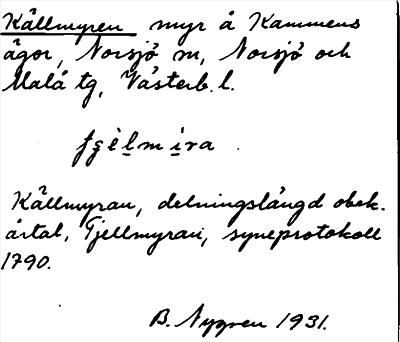 Källmyren myr å Kammens
ägor, Norsjö sn, Norsjö och
Malå tg, Västerb. l.
Källmyran, delningslängd obek.
årtal, Tjellmyran, syneprotokoll
1790.
B. Nygren 1931.